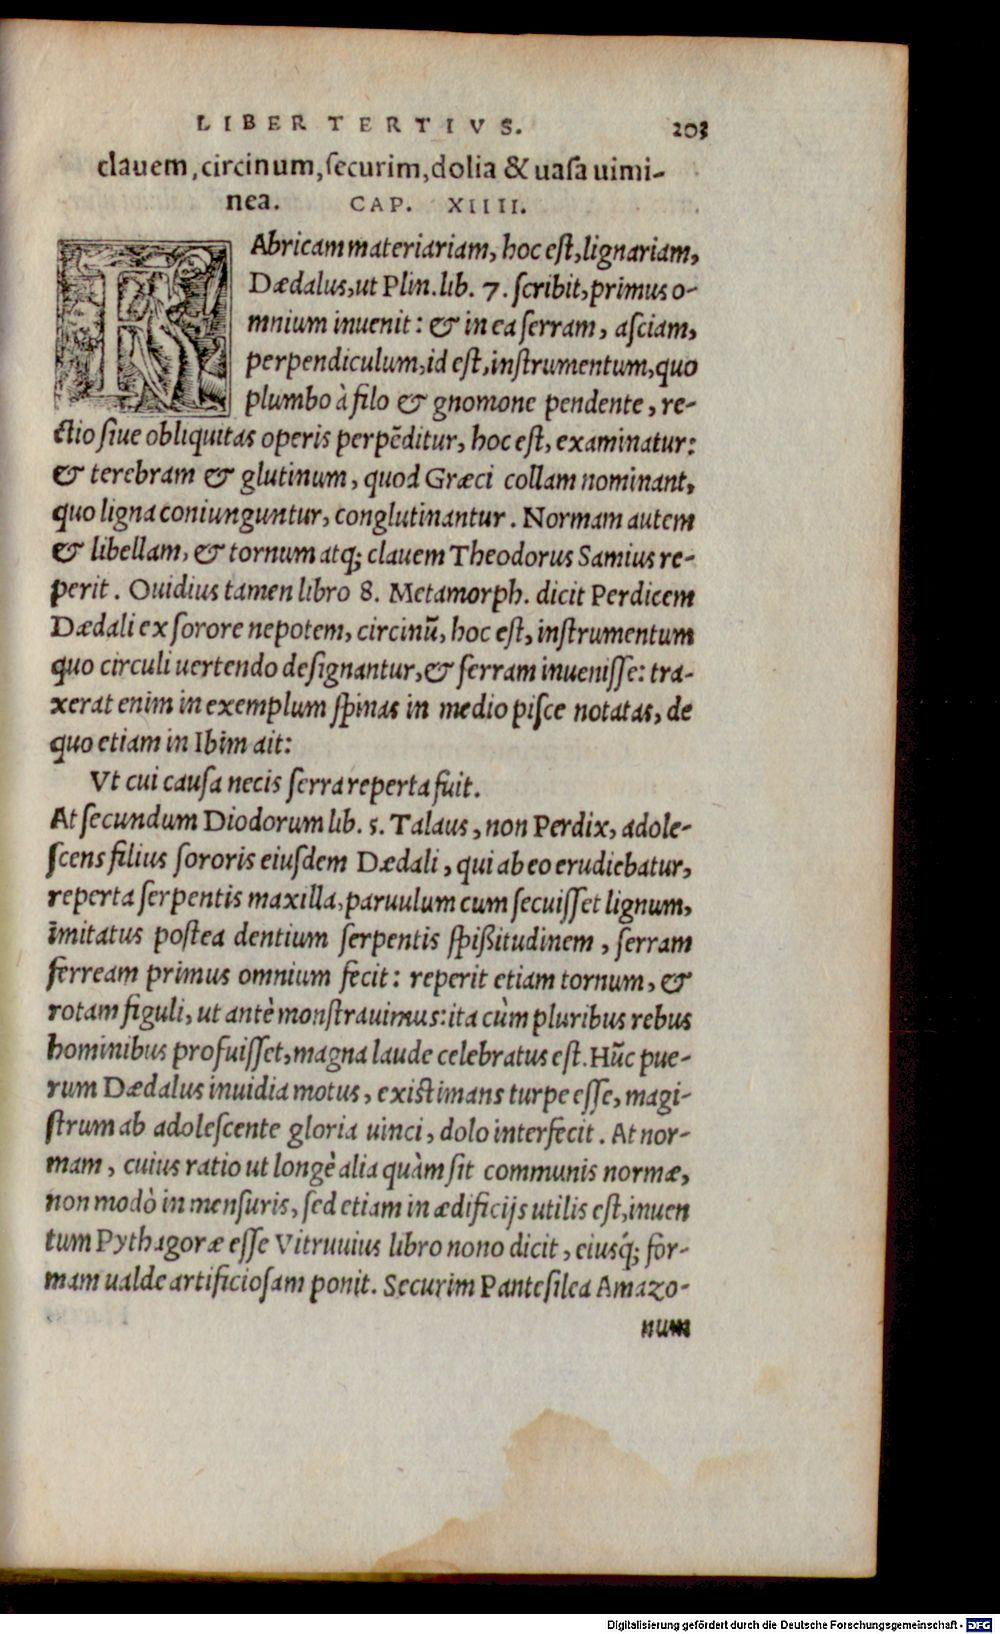 LIBER TERTIVS. 203
clauem, circinum, ſecurim, dolia & uaſa uimi-
nea. CAP. XIIII.
FAbricam materiariam, hoc eſt, lignariam,
Dædalus, ut Plin. lib. 7. ſcribit, primus o-
mnium inuenit: & in ea ſerram, aſciam,
perpendiculum, id eſt, inſtrumentum, quo
plumbo à filo & gnomone pendente, re-
ctio ſiue obliquitas operis perpẽditur, hoc eſt, examinatur:
& terebram & glutinum, quod Græci collam nominant,
quo ligna coniunguntur, conglutinantur. Normam autem
& libellam, & tornum atq; clauem Theodorus Samius re-
perit. Ouidius tamen libro 8. Metamorph. dicit Perdicem
Dædali ex ſorore nepotem, circinũ, hoc eſt, inſtrumentum
quo circuli uertendo deſignantur, & ſerram inueniſſe: tra-
xerat enim in exemplum ſpinas in medio piſce notatas, de
quo etiam in Ibim ait:
Vt cui cauſa necis ſerra reperta fuit.
At ſecundum Diodorum lib. 5. Talaus, non Perdix, adole-
ſcens filius ſororis eiuſdem Dædali, qui ab eo erudiebatur,
reperta ſerpentis maxilla, paruulum cum ſecuiſſet lignum,
imitatus poſtea dentium ſerpentis ſpißitudinem, ſerram
ferream primus omnium fecit: reperit etiam tornum, &
rotam figuli, ut antè monſtrauimus: ita cùm pluribus rebus
hominibus profuiſſet, magna laude celebratus eſt. Hũc pue-
rum Dædalus inuidia motus, exiſtimans turpe eſſe, magi-
ſtrum ab adoleſcente gloria uinci, dolo interfecit. At nor-
mam, cuius ratio ut longè alia quàm ſit communis normæ,
non modò in menſuris, ſed etiam in ædificijs utilis eſt, inuen
tum Pythagoræ eſſe Vitruuius libro nono dicit, eiusq́; for-
mam ualde artificioſam ponit. Securim Panteſilea Amazo-
num
Digitalisierung gefördert durch die Deutsche Forschungsgemeinschaft - DFG